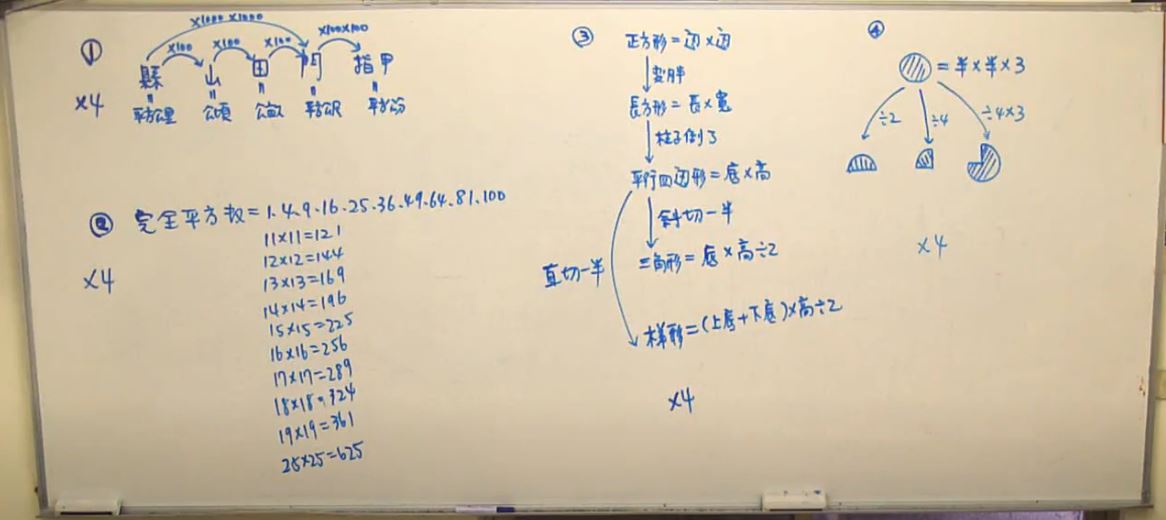 ①
×1000×1000
×100 ×100 ×100 ×100×100
縣 山 田 門 指甲
= = = = =
平方公里 公頃 公畝 平方公尺 平方公分
×4
② 完全平方數=1.4.9.16.25.36.49.64.81.100
11×11=121
12×12=144
13×13=169
14×14=196
15×15=225
16×16=256
17×17=289
18×18=324
19×19=361
25×25=625
×4
③ 正方形=边×边
变胖
長方形=長×寬
柱子倒了
平行四边形=底×高
斜切一半
三角形=底×高÷2
直切一半
梯形=(上底+下底)×高÷2
×4
④
=半×半×3
÷2 ÷4 ÷4×3
×4